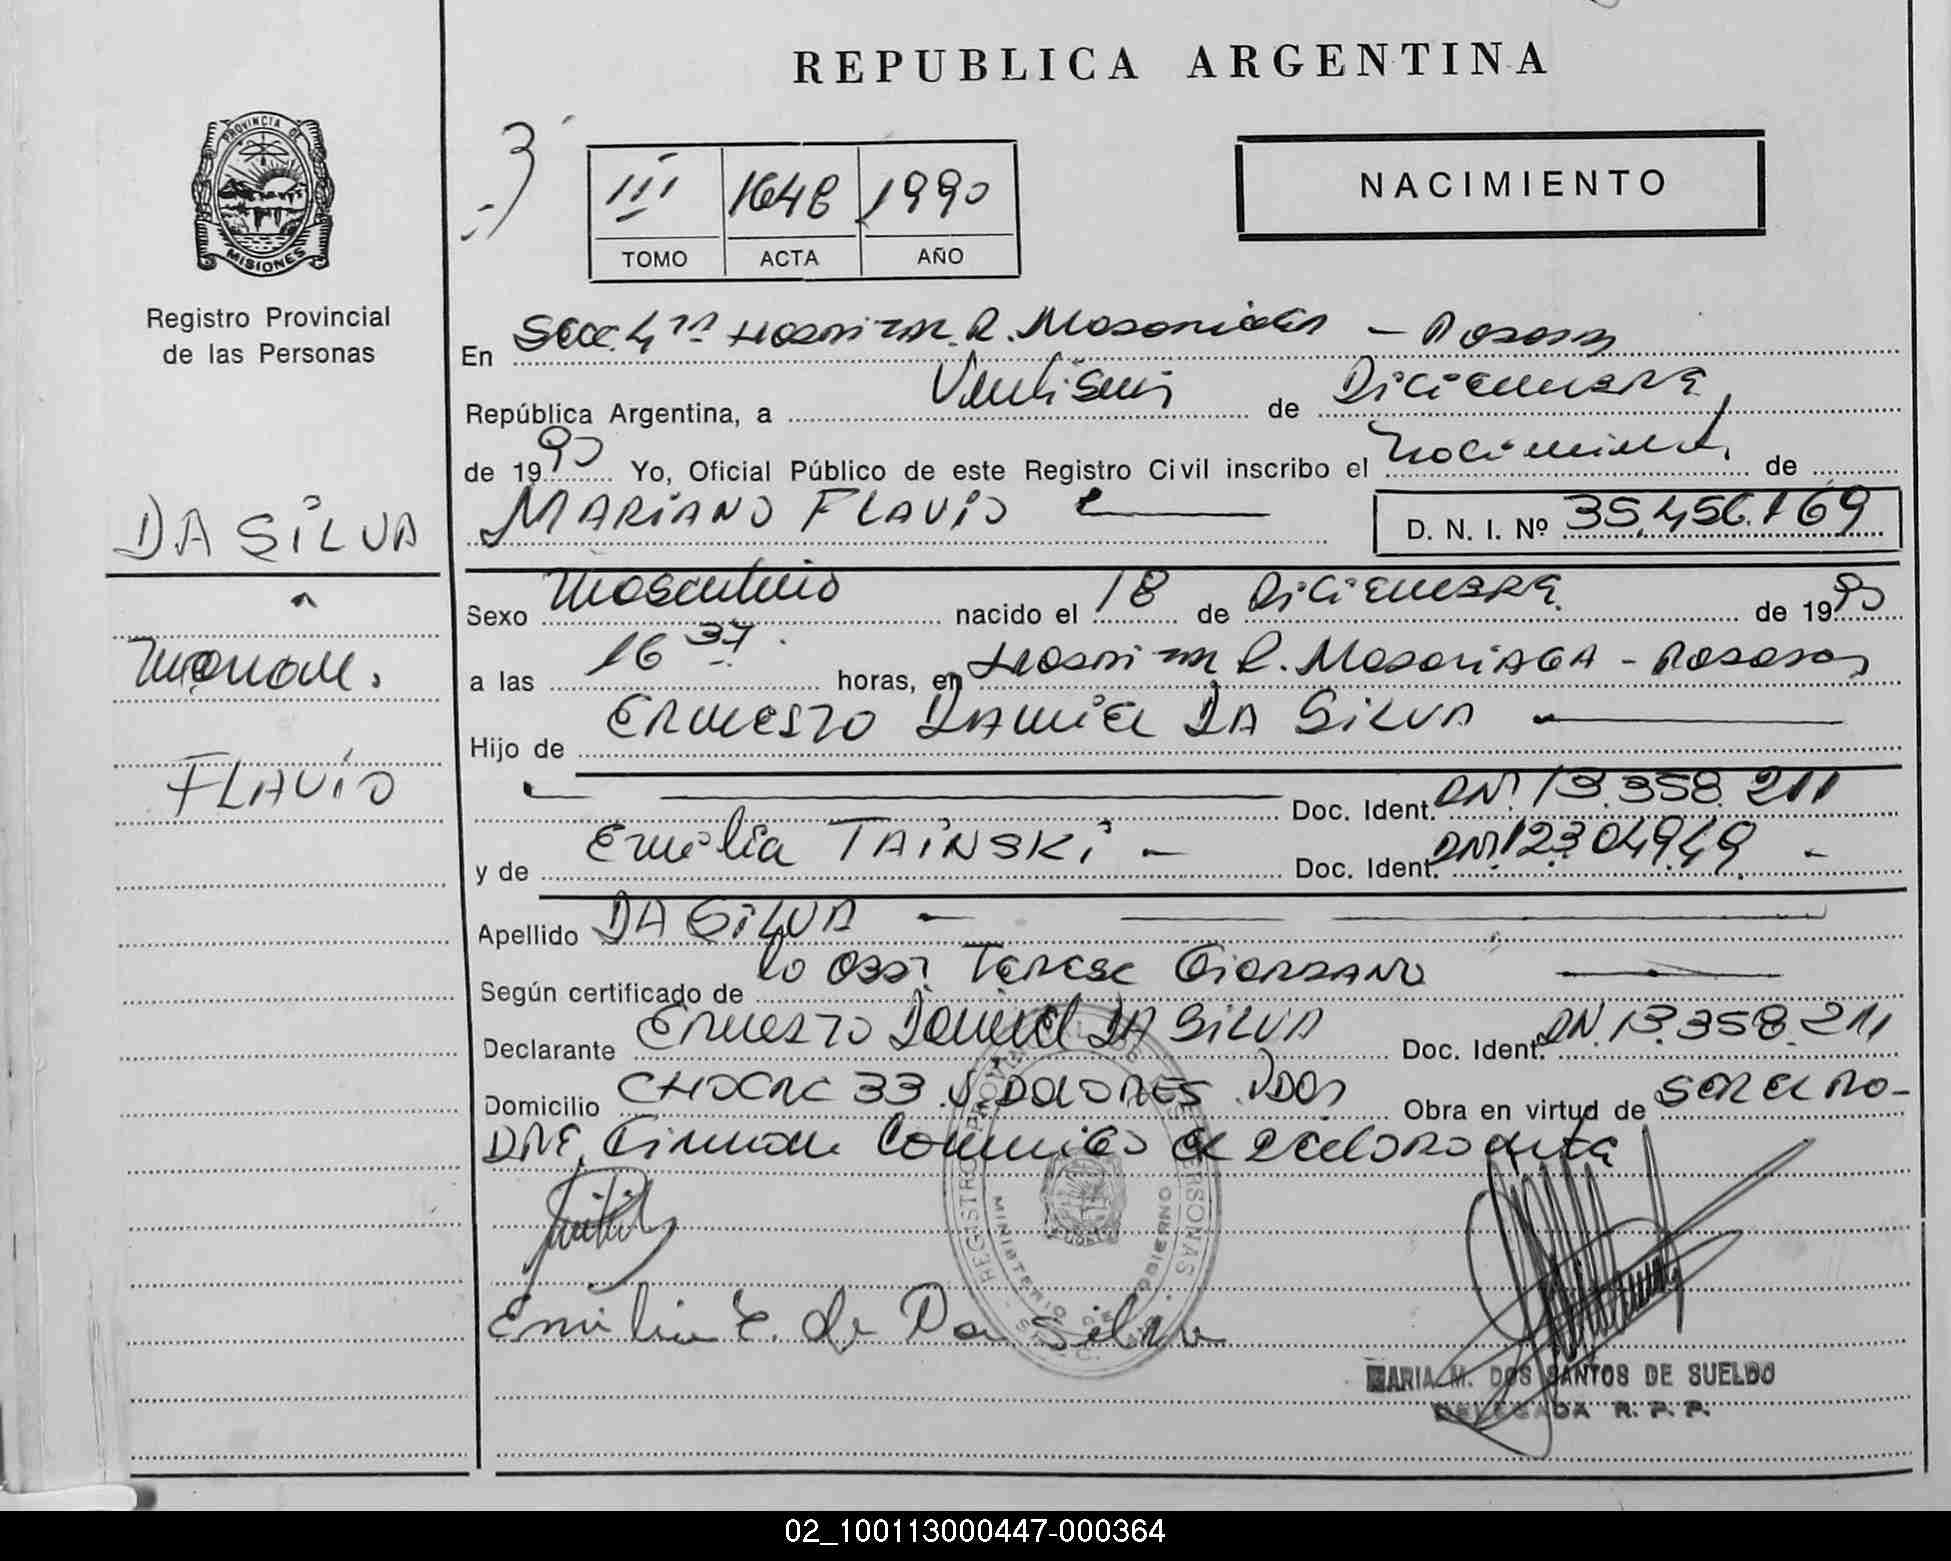 REPUBLICA ARGENTINA
PROVINCIA DE
MISIONES
Registro Provincial
de las Personas
3
III 1648 1990
TOMO ACTA AÑO
NACIMIENTO
En Secc. 4ta Hospital R. Madariaga - Posadas
República Argentina, a Veintiseis de Diciembre
de 1990 Yo, Oficial Público de este Registro Civil inscribo el nacimiento de
DA SILVA
MARIANO FLAVIO
D. N. I. Nº 35.456.169
Sexo Masculino nacido el 18 de Diciembre de 1990
Mariano
a las 16 37 horas, en Hospital R. Madariaga - Posadas
Hijo de Ernesto Daniel DA SILVA
FLAVIO
Doc. Ident. DNI 13.358.211
y de Emilia TAINSKI - Doc. Ident. DNI 12304949 -
Apellido DA SILVA
Según certificado de la Obst. Teresa Giordano
Declarante Ernesto Daniel DA SILVA Doc. Ident. DN. 13.358.211
Domicilio CHACRA 33 V. DOLORES Pdas Obra en virtud de ser el Pa-
dre, Firman
Emilia T. de Da Silva
REGISTRO PROVINCIAL DE LAS PERSONAS
MINISTERIO DE GOBIERNO
MARIA M. DOS SANTOS DE SUELDO
DELEGADA R. P. P.
02_100113000447-000364